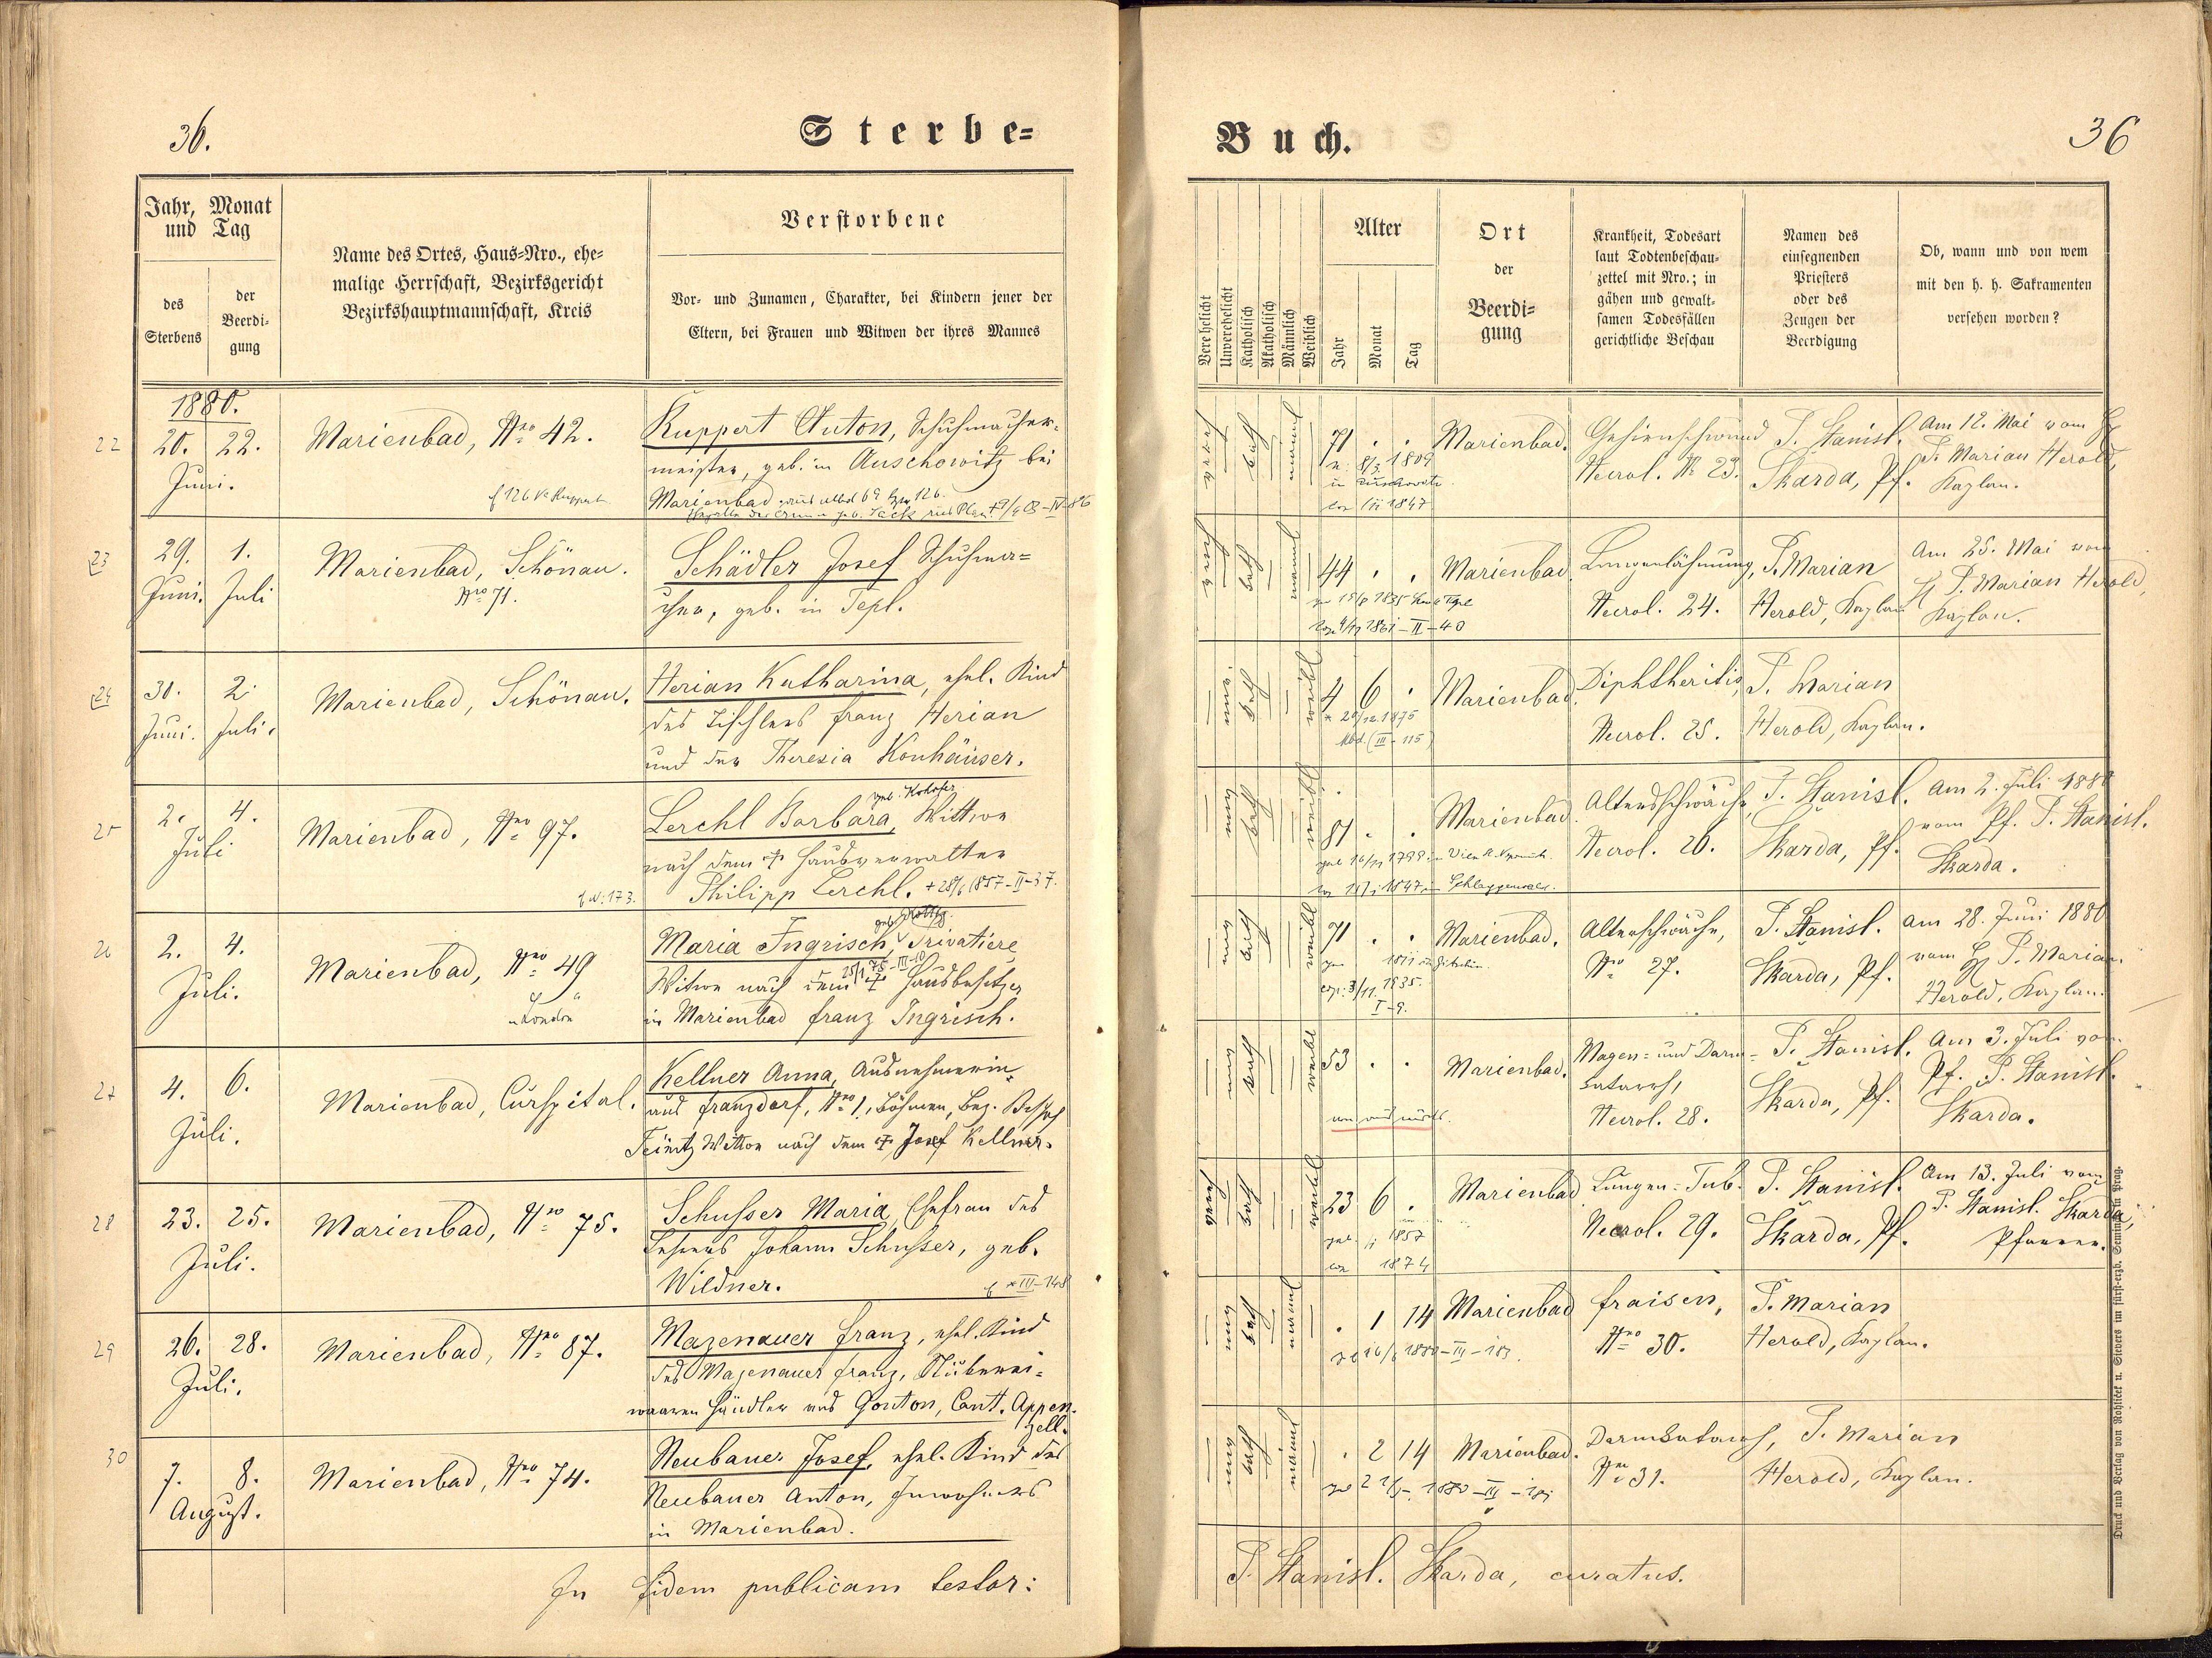 36.
Sterbe=
Buch.
36
Jahr, Monat
und Tag
des
Sterbens
der
Beerdi=
gung
Name des Ortes, Haus=Nro., ehe=
malige Herrschaft, Bezirksgericht
Bezirkshauptmannschaft, Kreis
Verstorbene
Vor= und Zunamen, Charakter, bei Kindern jener der
Eltern, bei Frauen und Witwen der ihres Mannes
Verehelicht
Unverehelicht
Katholisch
Akatholisch
Männlich
Weiblich
Alter
Jahr
Monat
Tag
Ort
der
Beerdi=
gung
Krankheit, Todesart
laut Todtenbeschau=
zettel mit Nro.; in
gähen und gewalt=
samen Todesfällen
gerichtliche Beschau
Namen des
einsegnenden
Priesters
oder des
Zeugen der
Beerdigung
Ob, wann und von wem
mit den h. h. Sakramenten
versehen worden?
1880.
22
20. 22.
Juni.
Marienbad, Nro 42.
Ruppert Anton, Schuhmacher=
meister, geb. in Auschowitz bei
Marienbad
71 . .
1809
1847
Marienbad.
Gehirnschwund
Necrol. No 23.
P. Stanisl.
Skarda, Pf.
Am 12. Mai vom H
P. Marian Herold,
Kaplan.
23
29. 1.
Juni. Juli
Marienbad, Schönau.
Nro 71.
Schädler Josef Schuhma=
cher, geb. in Tepl.
44 . .
1835
1861 - II - 40
Marienbad.
Lungenlähmung,
Necrol. 24.
P. Marian
Herold, Kaplan
Am 25. Mai vom
H P. Marian Herold,
Kaplan.
24
30. 2.
Juni. Juli.
Marienbad, Schönau.
Herian Katharina, ehel. Kind
des Tischlers Franz Herian
und der Theresia Konhäuser.
4 6 .
1875
(III - 115)
Marienbad.
Diphtheritis,
Necrol. 25.
P. Marian
Herold, Kaplan.
25
2. 4.
Juli
Marienbad, Nro 97.
Lerchl Barbara, Wittwe
nach dem † Hausverwalter
Philipp Lerchl. + 28/6 1857 - II - 37.
81 . .
1799
1847
Marienbad.
Altersschwäche,
Necrol. 26.
P. Stanisl.
Skarda, Pf.
Am 2. Juli 1880
vom Pf. P. Stanisl.
Skarda.
26
2. 4.
Juli.
Marienbad, Nro 49
London
Maria Ingrisch, Privatiere
Witwe nach dem † Hausbesitzer
in Marienbad Franz Ingrisch.
71 . .
1835.
I - 9.
Marienbad.
Altersschwäche,
Nro 27.
P. Stanisl.
Skarda, Pf.
am 28. Juni 1880
vom H P. Marian
Herold, Kaplan.
27
4. 6.
Juli.
Marienbad, Curspital.
Kellner Anna, Ausnehmerin
aus Franzdorf, Nro 1, Böhmen, Bez. Bischof
Teinitz Wittwe nach dem † Josef Kellner.
53 . .
Marienbad.
Magen= und Darm=
katarrh,
Necrol. 28.
P. Stanisl.
Skarda, Pf.
Am 3. Juli vom
Pf. P. Stanisl.
Skarda.
28
23. 25.
Juli.
Marienbad, Nro 75.
Schusser Maria, Ehefrau des
Lehrers Johann Schusser, geb.
Wildner.
III - 148
23 6 .
1857
1874
Marienbad
Lungen=Tub.
Necrol. 29.
P. Stanisl.
Skarda, Pf.
Am 13. Juli vom
P. Stanisl. Skarda,
Pfarrer.
29
26. 28.
Juli.
Marienbad, Nro 87.
Mazenauer Franz, ehel. Kind
des Mazenauer Franz, Stickerei=
waaren Händler aus Gonton, Cant. Appen=
zell.
. 1 14
Marienbad
Fraisen,
Nro 30.
P. Marian
Herold, Kaplan.
30
7. 8.
August.
Marienbad, Nro 74.
Neubauer Josef, ehel. Kind des
Neubauer Anton, Inwohners
in Marienbad.
. 2 14
Marienbad.
Darmkatarrh,
Nro 31.
P. Marian
Herold, Kaplan.
In fidem publicam testor:
P. Stanisl. Skarda, curatus.
Druck und Verlag von Rohliček u. Sievers im fürst=erzb. Seminar in Prag.